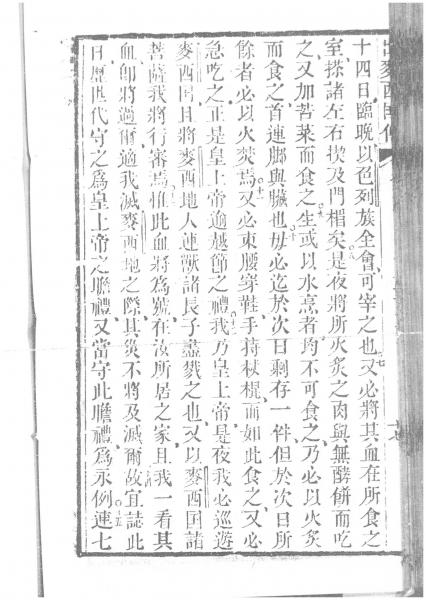 出麥西國傳
十四日臨晚以色列族全會可宰之也○七又必將其血在所食之
室搽諸左右楔及門楣矣○八是夜將所火炙之肉與無酵餅而吃
之又加苦菜而食之○九生或以水烹者均不可食之乃必以火炙
而食之首連腳與臟也○十毋必迄於次日剩存一件但於次日所
餘者必以火焚焉○十一又必束腰穿鞋手持杖棍而如此食之又必
急吃之正是皇上帝逾越節之禮○十二我乃皇上帝是夜我必巡遊
麥西國且將麥西地人連獸諸長子盡戮之也又以麥西國諸
菩薩我將行審焉○十三惟此血將為號在汝所居之家且我一看其
血即將過爾適我滅麥西地之際其災不將及滅爾○十四故宜誌此
日歷世代守之為皇上帝之瞻禮又當守此瞻禮為永例○十五連七